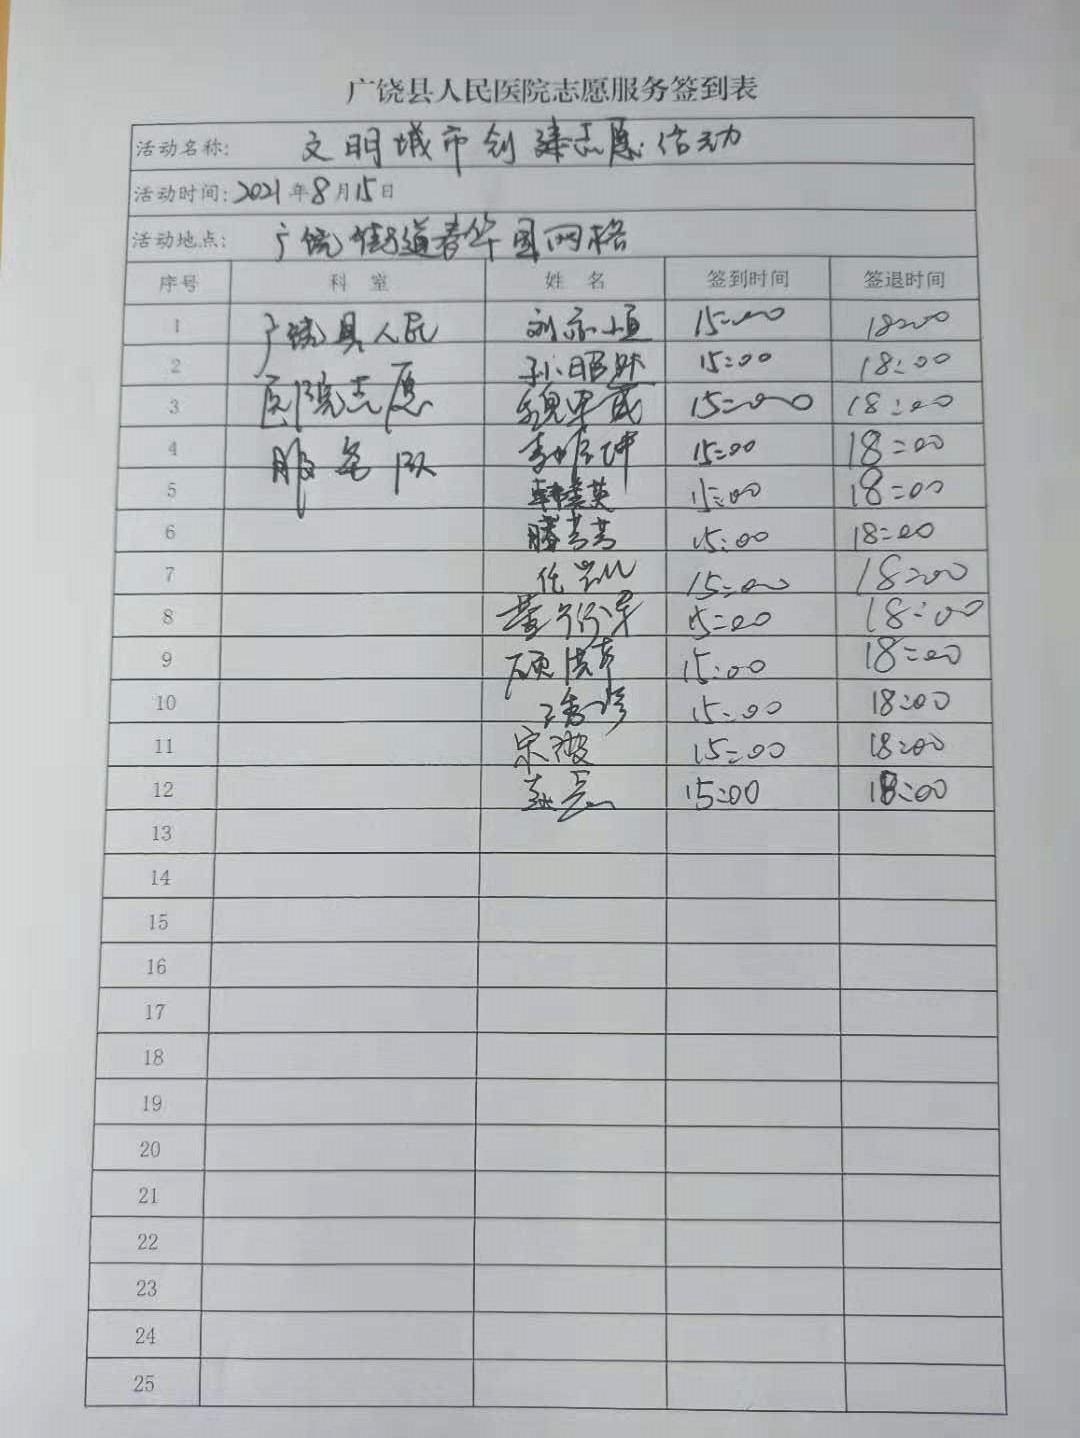 广饶县人民医院志愿服务签到表
活动名称: 文明城市创建志愿活动
活动时间: 2021年8月15日
活动地点: 广饶街道春华园网格
序号 科 室 姓 名 签到时间 签退时间
1 广饶县人民 刘亦恒 15:00 18:00
2 医院志愿 孙昭 15:00 18:00
3 服务队 魏 15:00 18:00
4 李 坤 15:00 18:00
5 韩 英 15:00 18:00
6 滕芳芳 15:00 18:00
7 任 15:00 18:00
8 董 军 15:00 18:00
9 顾 15:00 18:00
10 15:00 18:00
11 宋波 15:00 18:00
12 15:00 18:00
13
14
15
16
17
18
19
20
21
22
23
24
25